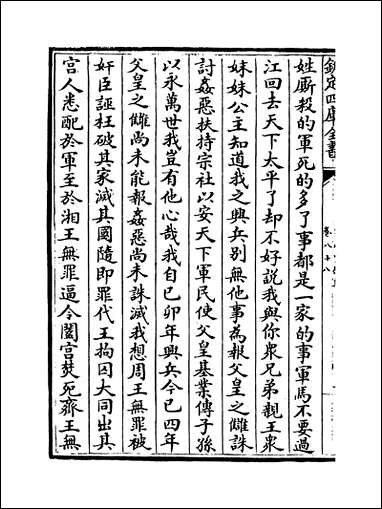 欽定四庫全書
姓廝殺的軍死的多了事都是一家的事軍馬不要過
江回去天下太平了却不好說我與你衆兄弟親王衆
妹妹公主知道我之興兵別無他事為報父皇之讎誅
討姦惡扶持宗社以安天下軍民使父皇基業傳子孫
以永萬世我豈有他心哉我自己夘年興兵今已四年
父皇之讎尚未能報姦惡尚未誅滅我想周王無罪被
奸臣誣枉破其家滅其國隨即罪代王拘囚大同出其
宮人悉配於軍至於湘王無罪逼令闔宮焚死齊王無